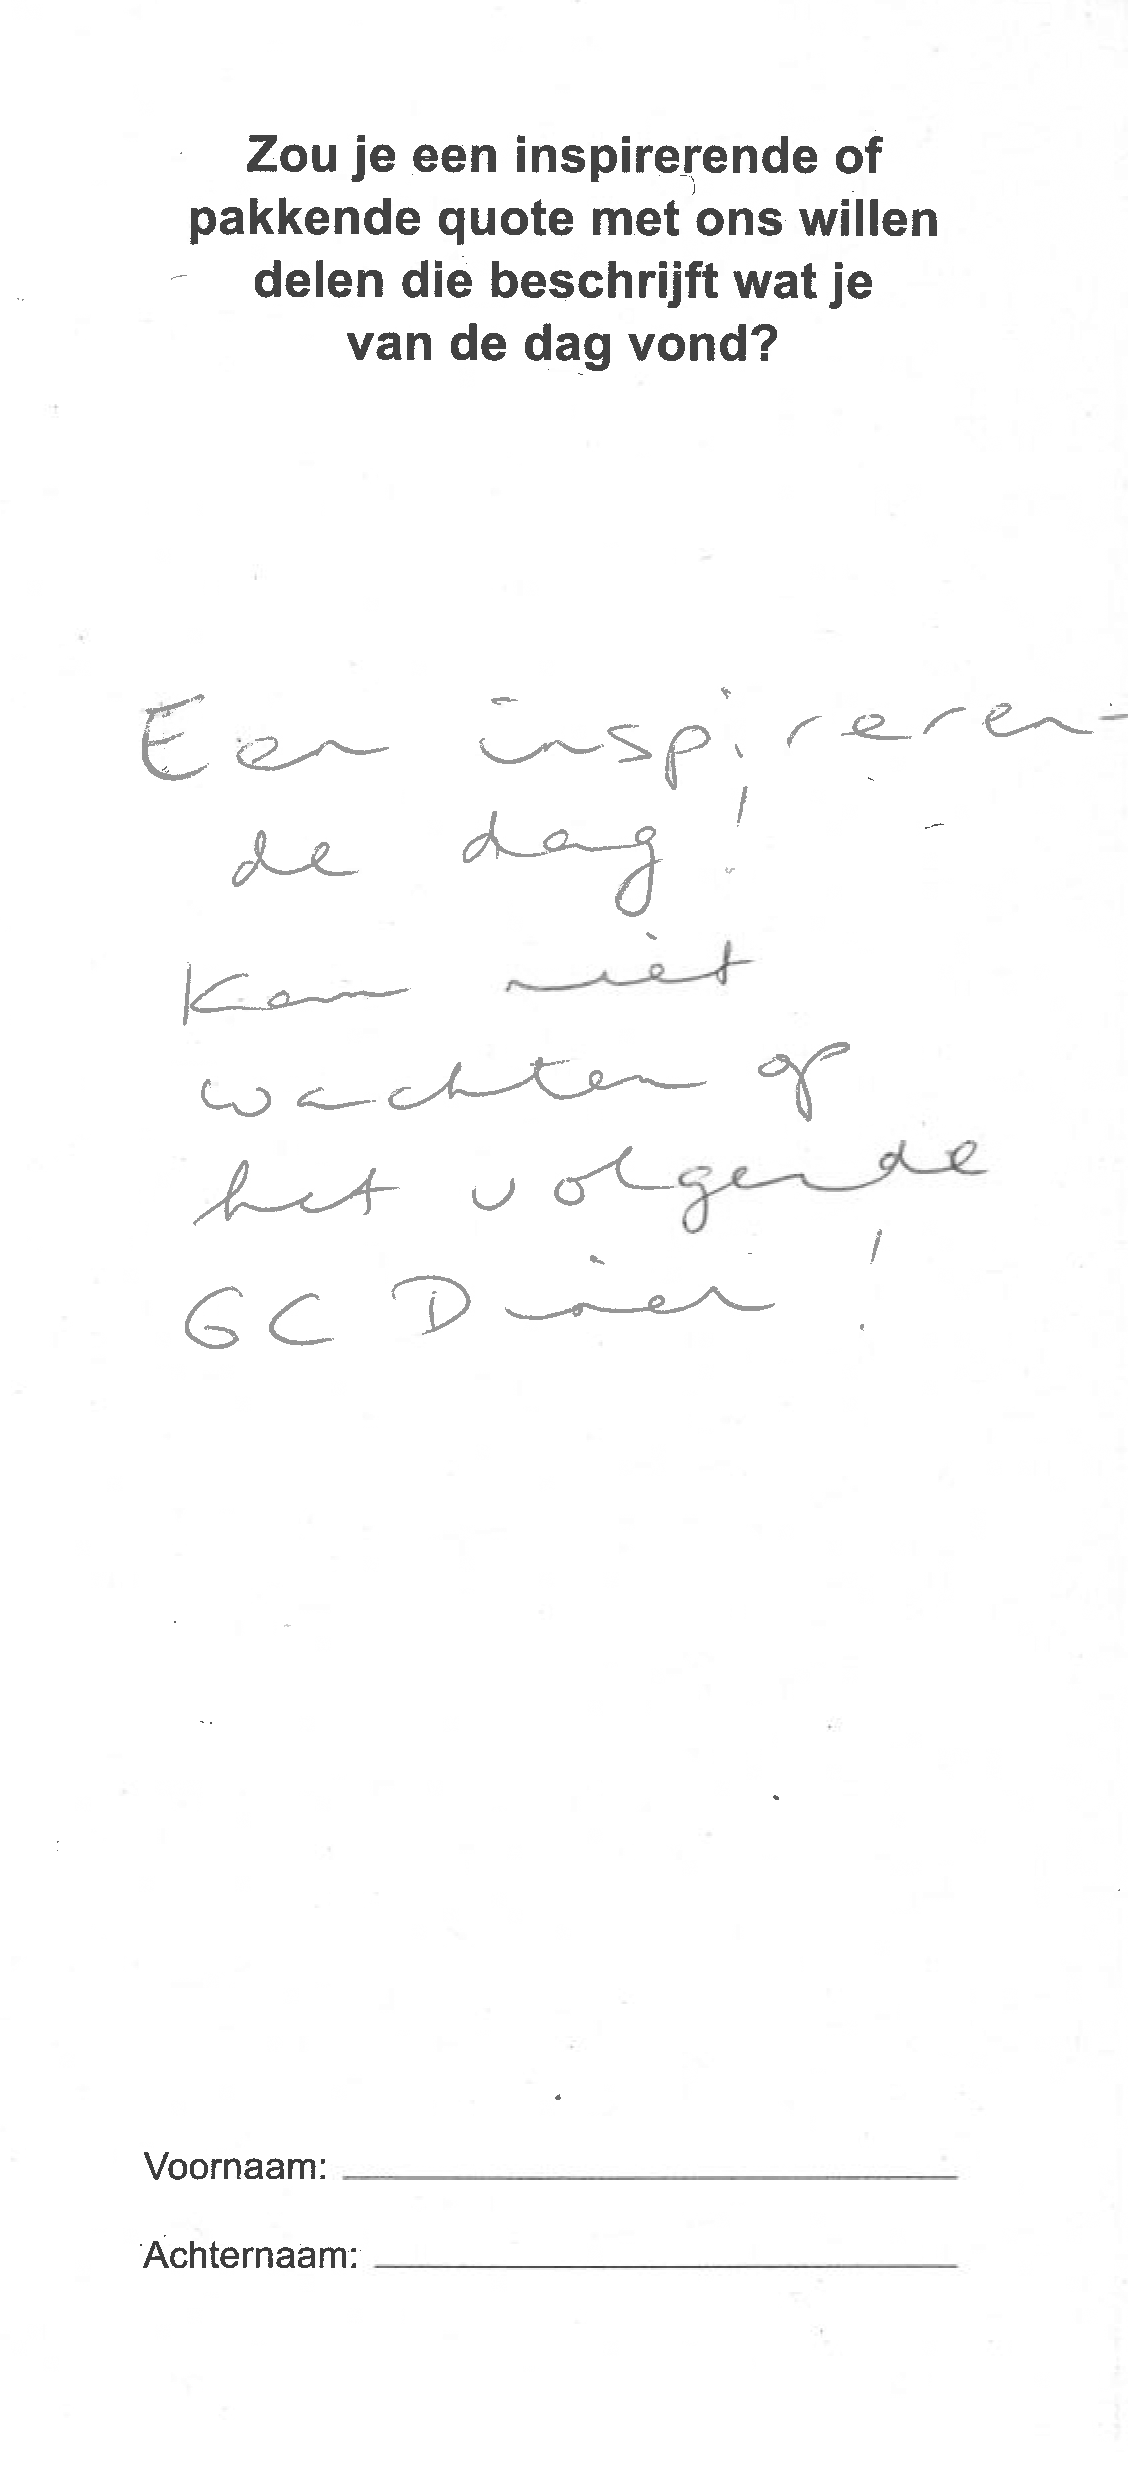 Zou je een inspirerende of
pakkende quote met ons willen
delen die beschrijft wat je
van de dag vond?
Een inspireren-
de dag!
Kan niet
wachten op
het volgende
GC Diner!
Voornaam:
Achternaam: